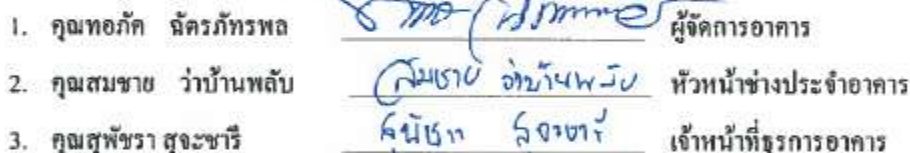 1. คุณทอภัค ฉัตรภัทรพล ผู้จัดการอาคาร
2. คุณสมชาย ว่าบ้านพลับ สมชาย ว่าบ้านพลับ หัวหน้าช่างประจำอาคาร
3. คุณสุพัชรา สุจะชารี สุพัชรา สุจะชารี เจ้าหน้าที่ธุรการอาคาร